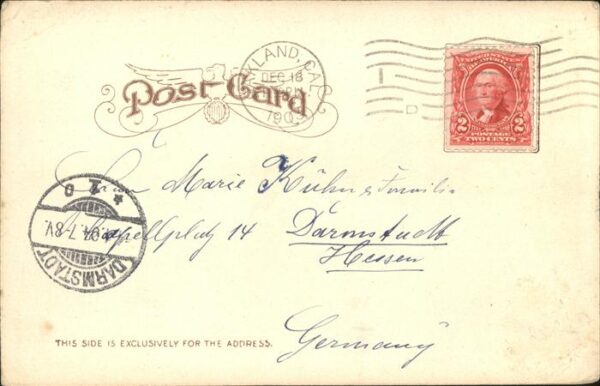 Post Card
OAKLAND, CAL.
DEC 18
190
D
UNITED STATES
OF AMERICA
2 2
POSTAGE
TWO CENTS
Frau Marie Kühn & Familie
Kapellplatz 14 Darmstadt
Hessen
Germany
DARMSTADT
7.8V.
THIS SIDE IS EXCLUSIVELY FOR THE ADDRESS.